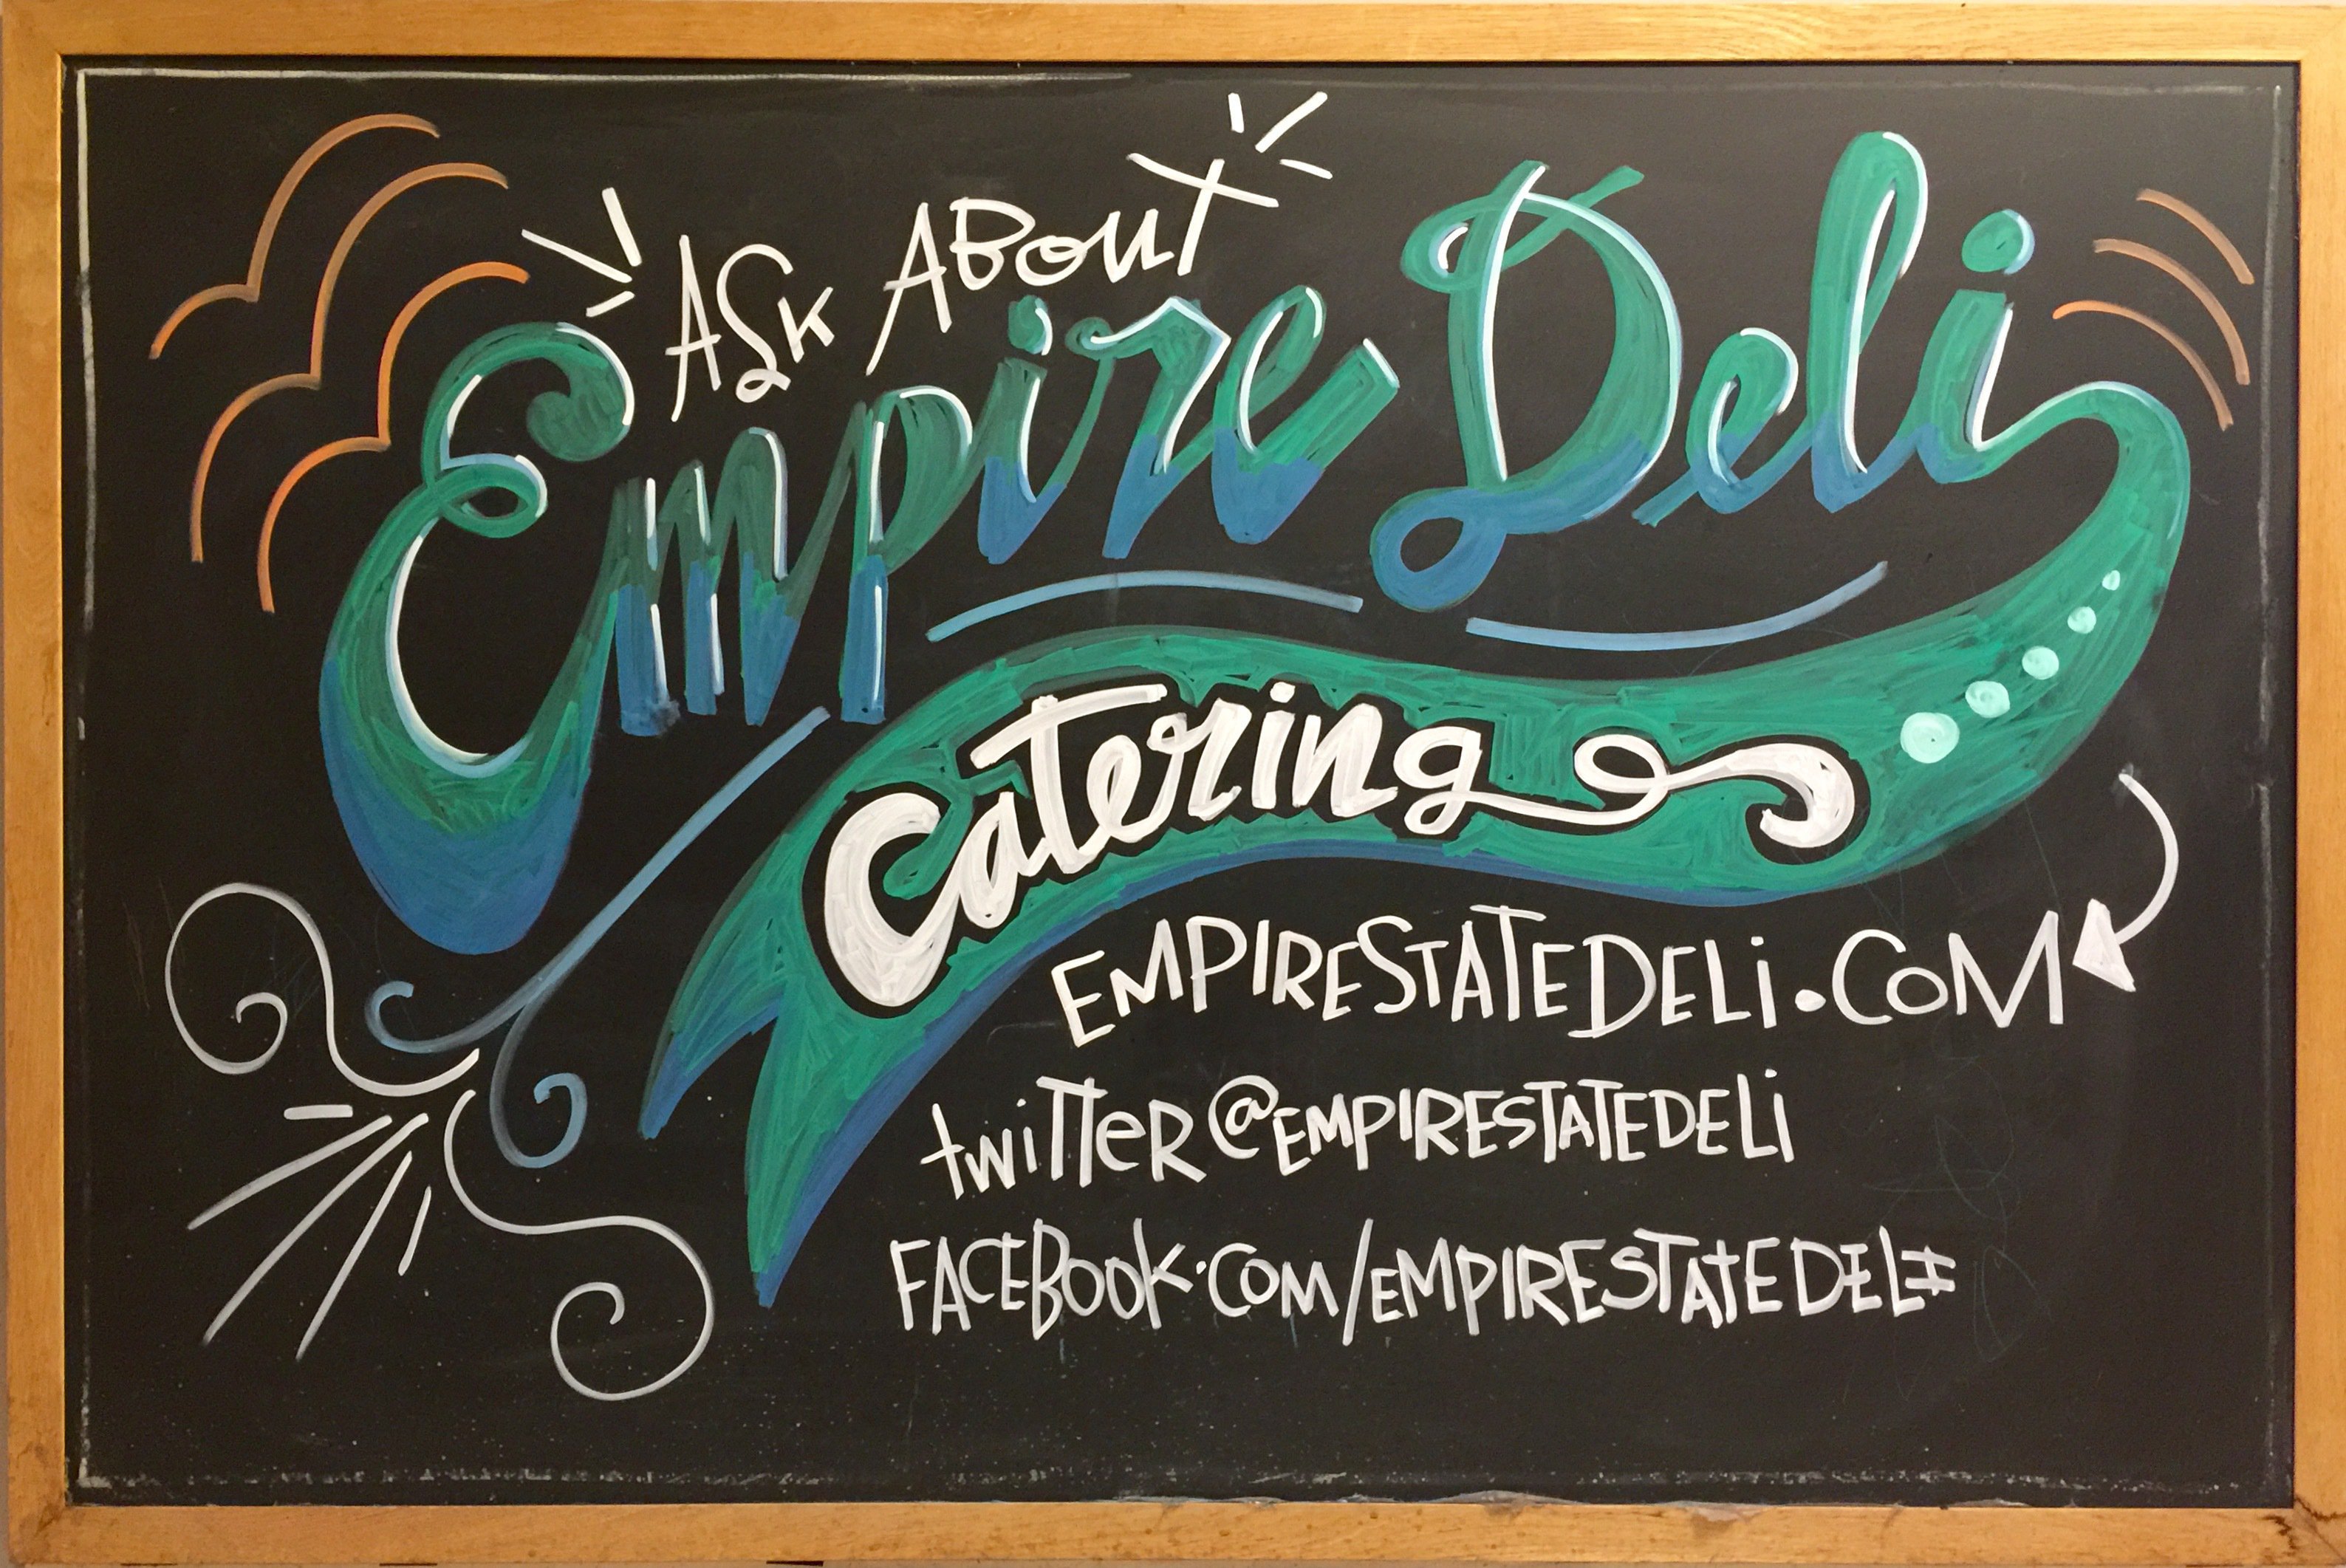 ASK ABOUT
Empire Deli
Catering
EMPIRESTATEDELi.COM
twiTTeR @EMPIRESTATEDELi
FACEBOOK.COM/EMPIRESTATEDELI